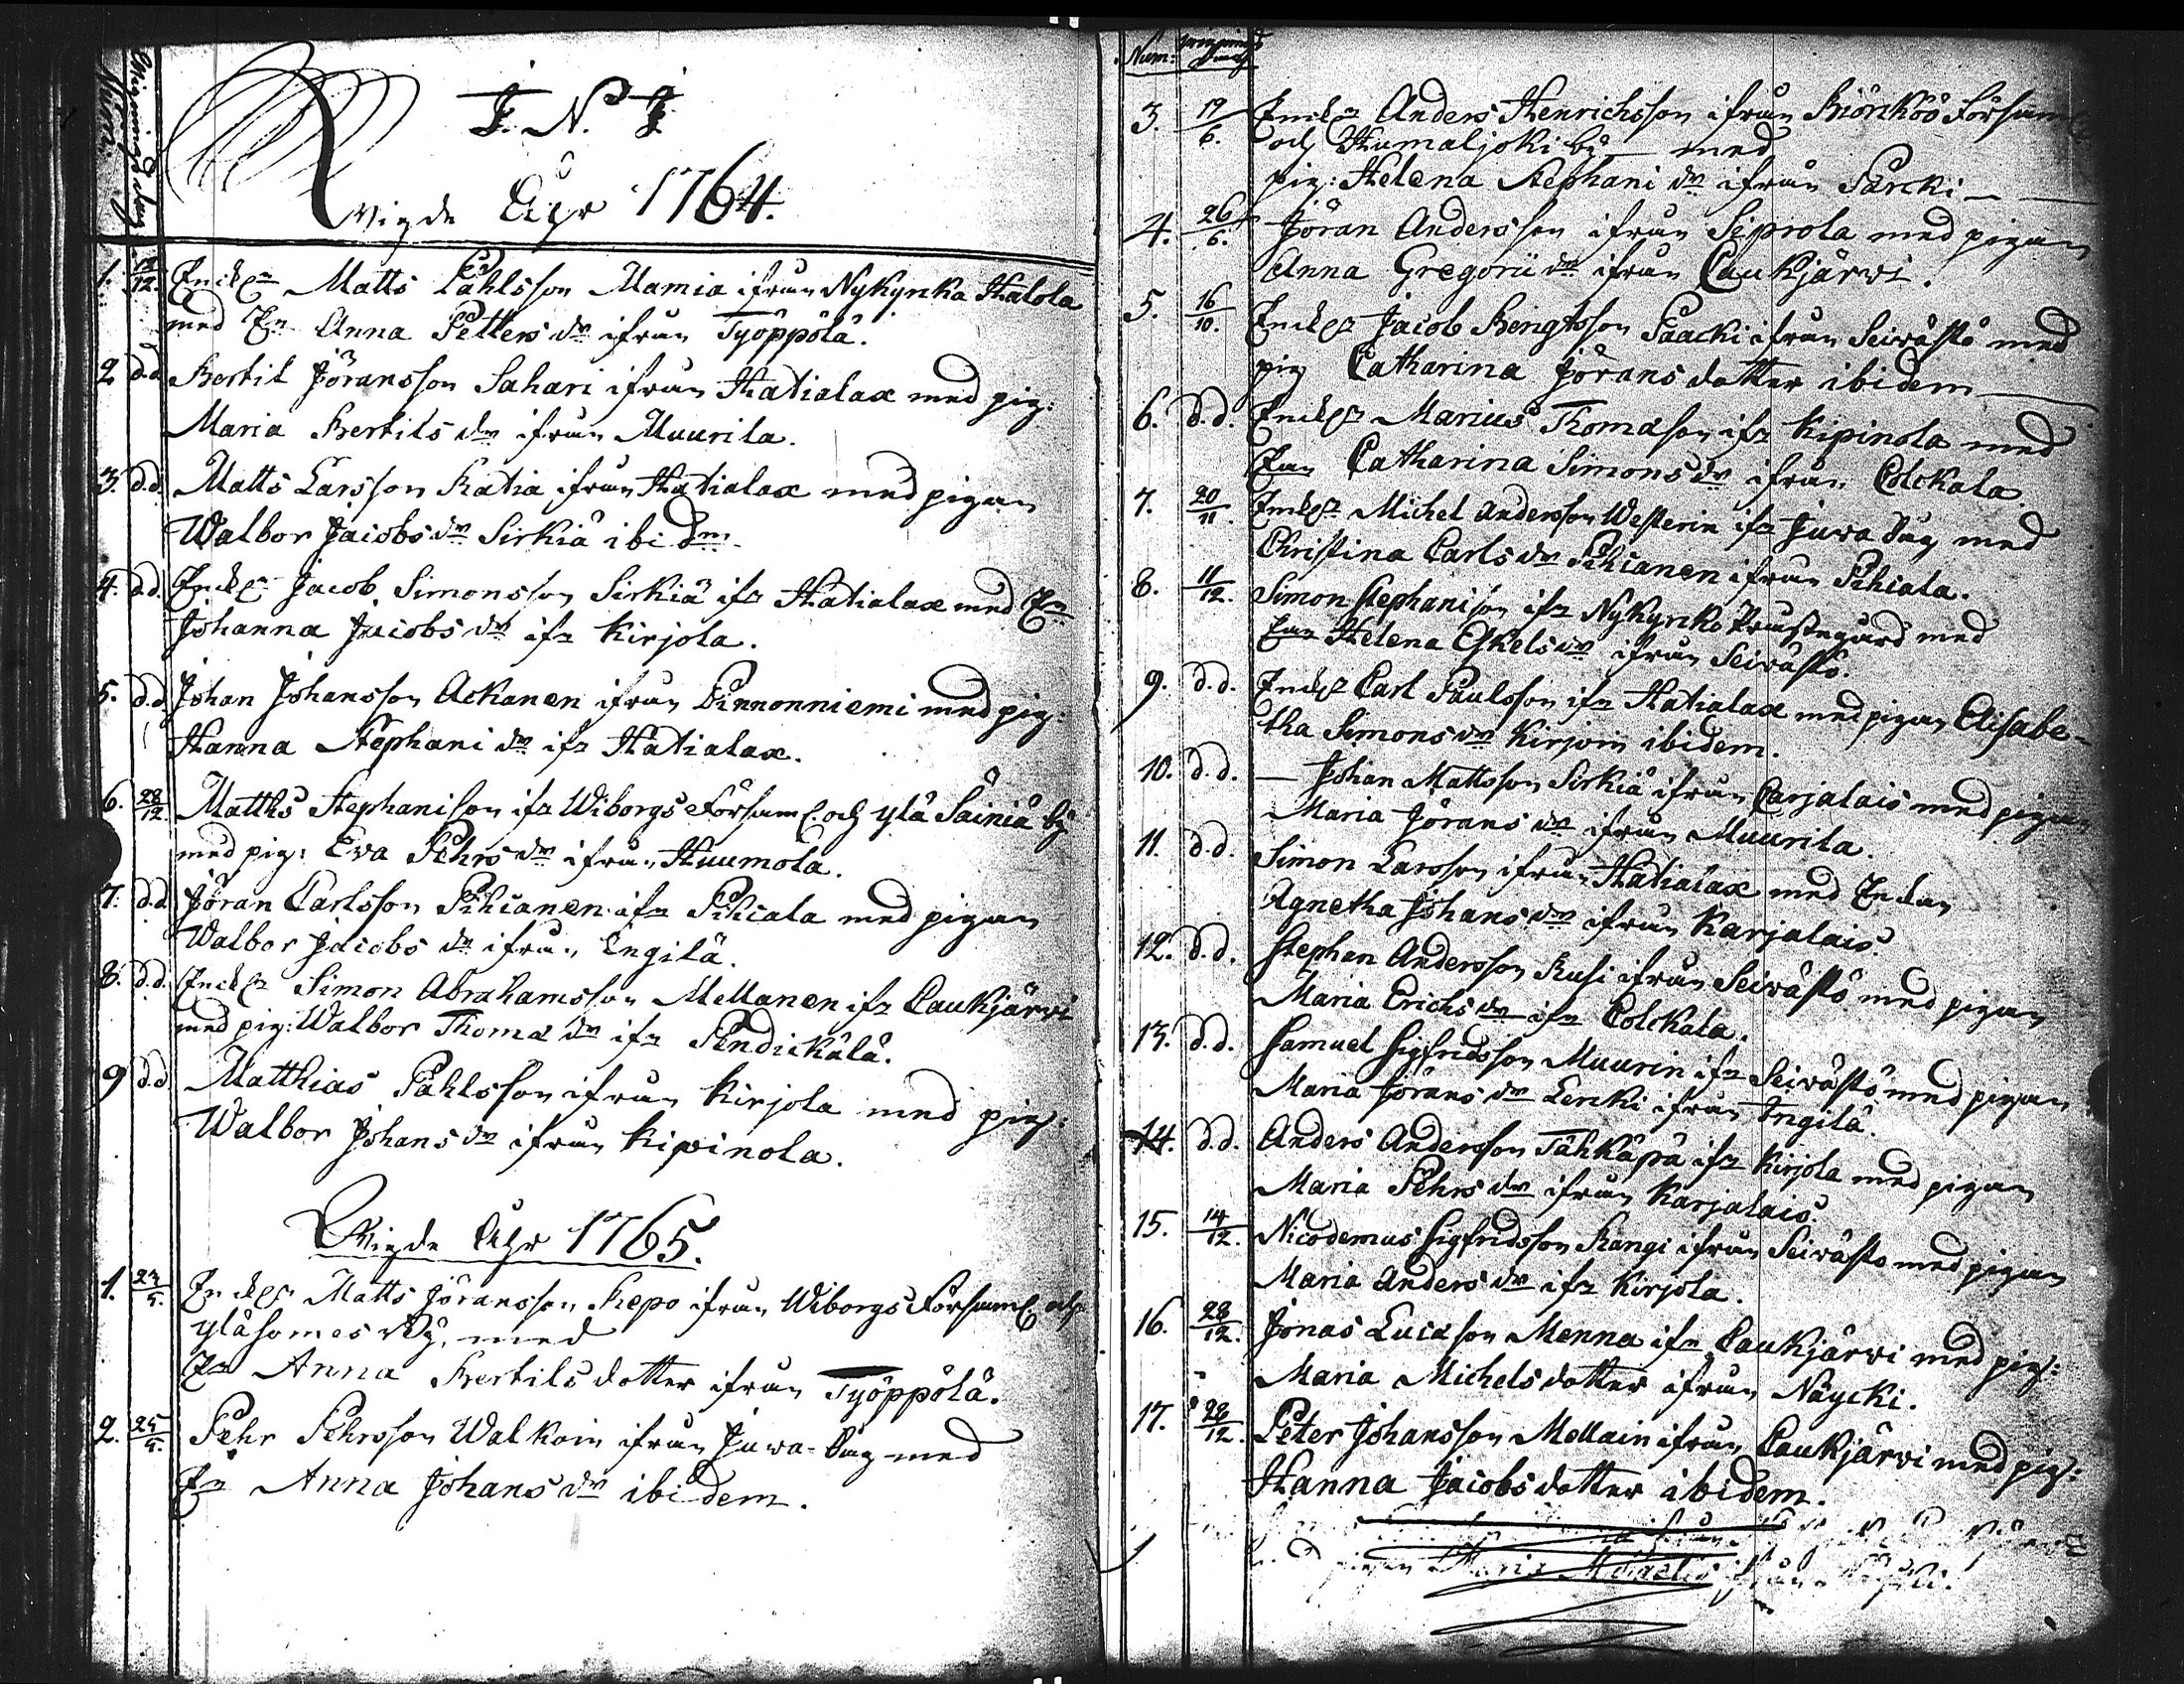 Num: Wignings dag
J. N. J.
Wigde Åhr 1764.
1. 14/12. Enkl:n Matts Påhlsson Mamia ifrån Nykyrka Hatola
med E:n Anna Petters dr ifrån Työppölä.
2 d.d. Bertil Jöransson Sahari ifrån Hatialax med pig:
Maria Bertils dr ifrån Muurila.
3. d.d. Matts Larsson Ratia ifrån Hatialax med pigan
Walbor Jacobs dr Sirkiä ibidm.
4. d.d. Enkl:n Jacob Simonsson Sirkiä ifr Hatialax med E:n
Johanna Jacobs dr ifr Kirjola.
5. d.d. Johan Johansson Ackanen ifrån Pinnonniemi med pig:
Hanna Stephani dr ifr Hatialax.
6. 28/12. Matths Stephanison ifr Wiborgs Församl. och ylä Säiniä by
med pig: Eva Pehrs dr ifrån Huumola.
7. d.d. Jöran Carlsson Pihianen ifr Pihiala med pigan
Walbor Jacobs dr ifrån Ingilä.
8. d.d. Enkl:n Simon Abrahamsson Mellanen ifr Caukjärwi
med pig: Walbor Thomæ dr ifr Pendickälä.
9 d.d. Matthias Påhlsson ifrån Kirjola med pig:
Walbor Johans dr ifrån Kipinola.
Wigde Åhr 1765.
1. 23/5. Enkl:n Matts Jöransson Repo ifrån Wiborgs Församl. och
yläsomes by, med
E:n Anna Bertils dotter ifrån Työppölä.
2. 25/5. Pehr Pehrsson Walkoin ifrån Juwa-Dag med
E:n Anna Johans dr ibidem.
Num: Wignings dag
3. 19/6. Enkl:n Anders Henrichsson ifrån Biörköö Församl:
och Humaljoki by med
pig: Helena Stephani dr ifrån Parcki
4. 26/6. Jöran Andersson ifrån Seprola med pigan
Anna Gregorii dr ifrån Caukjärwi.
5. 16/10. Enkl:n Jacob Bengtsson Paacki ifrån Seiwästö med
pig Catharina Jörans dotter ibidem
6. d.d. Enkl:n Marius Thomason ifr Kipinola med
Enn Catharina Simons dr ifrån Colckala
7. 20/11. Enkl:n Michel Andersson Westerin ifr Juwa Dag med
Christina Carls dr Pihianen ifrån Pihiala.
8. 11/12. Simon Stephanison ifr Nykyrko Prästegård med
Enn Helena Eskels dr ifrån Seiwästö.
9. d.d. Enkl:n Carl Paulsson ifr Hatialax med pigan Elisabe-
tha Simons dr Kirjoin ibidem.
10. d.d. Johan Mattsson Sirkiä ifrån Carjalais med pigan
Maria Jörans dr ifrån Muurila.
11. d.d. Simon Larsson ifrån Hatialax med Enkan
Agnetha Johans dr ifrån Karjalais.
12. d.d. Stephan Andersson Rusi ifrån Seiwästö med pigan
Maria Erichs dr ifr Colckala.
13. d.d. Samuel Sigfridsson Muurin ifr Seiwästö med pigan
Maria Jörans dr Lencki ifrån Ingilä.
14. d.d. Anders Andersson Tähkäpä ifr Kirjola med pigan
Maria Pehrs dr ifrån Karjalais.
15. 14/12. Nicodemus Sigfridsson Rangi ifrån Seiwästö med pigan
Maria Anders dr ifr Kirjola.
16. 28/12. Jonas Lucason Menna ifr Caukjärwi med pig:
Maria Michels dotter ifrån Näycki.
17. 28/12. Peter Johansson Mellain ifrån Caukjärwi med pig:
Hanna Jacobs dotter ibidem.
ifrån
pigan Maria ifrån